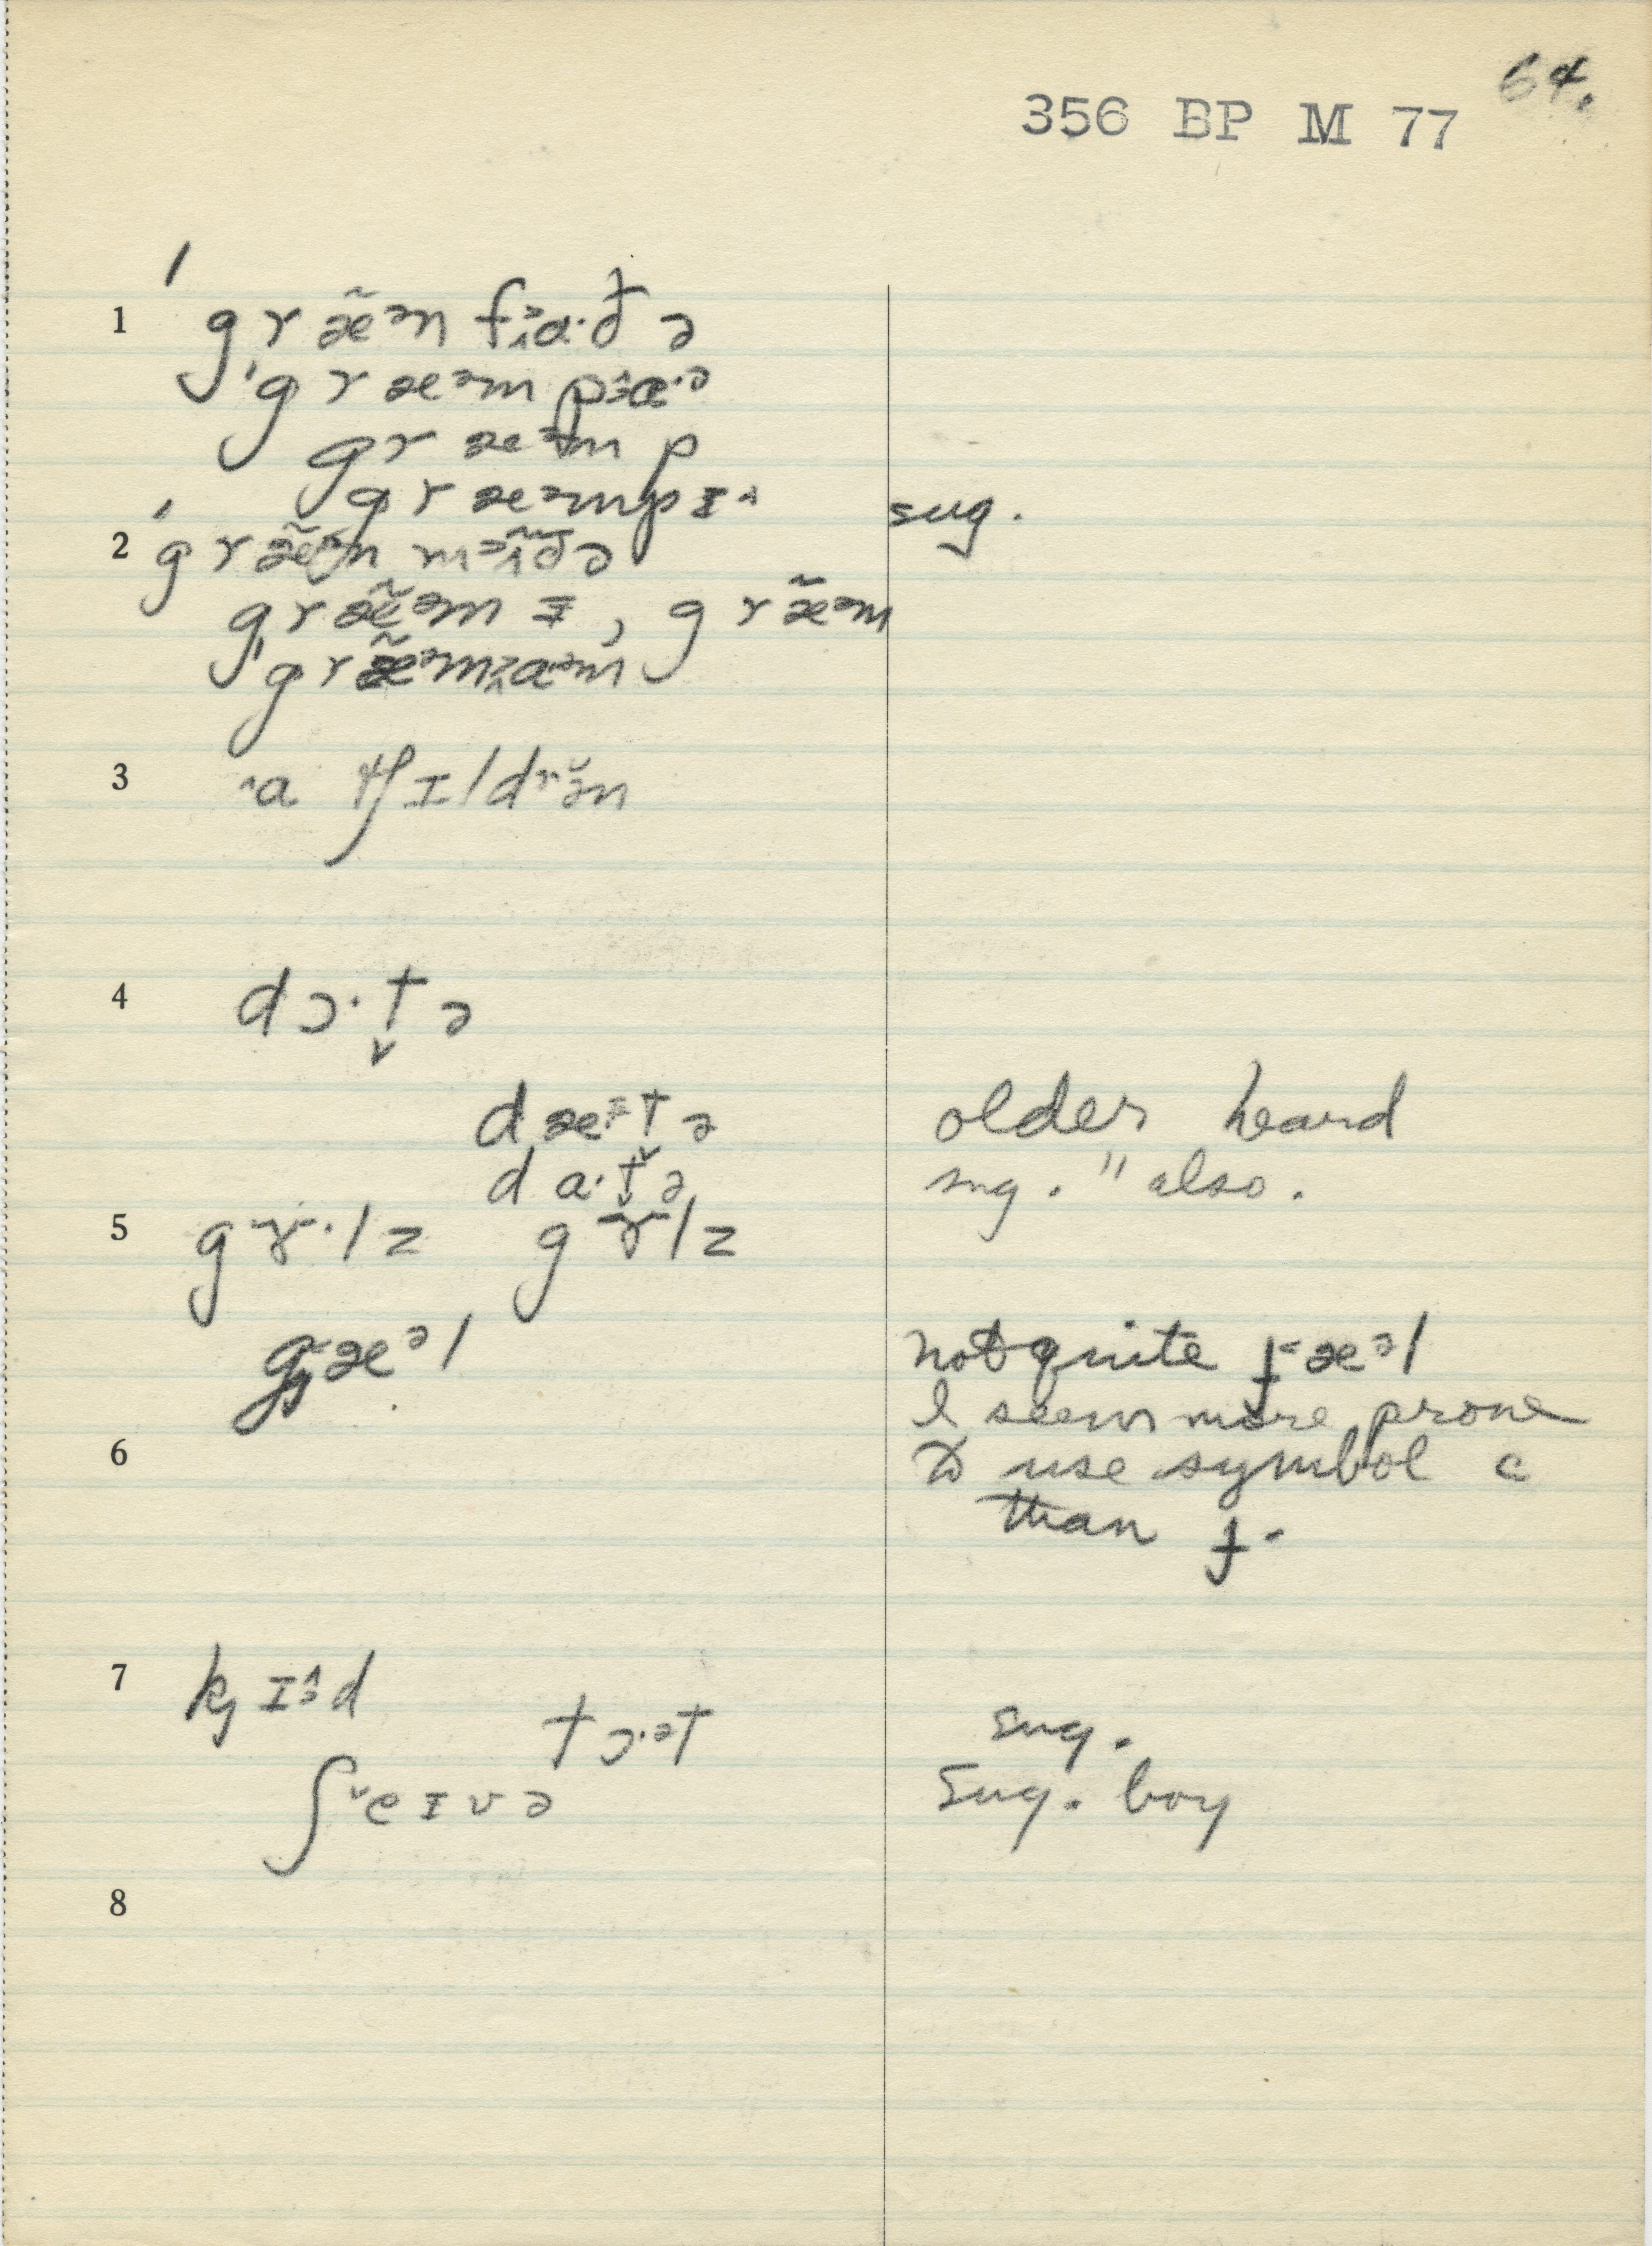 64.
356 BP M 77
1 ˈgræ̃ᵊn fɑ·ðə
ˈgræᵊm pɑ·ə
græᵊm p
græᵊmpɪ sug.
2 ˈgræ̃ᵊn mə̃ðə
græ̃ᵊm ɪ, græ̃ᵊm
ˈgræ̃ᵊmɑᵊm
3 a tʃɪldrən
4 dɔ·tə
dæɪtə older heard
da·tə sug. " also.
5 gɤ·lz gɤlz
gæᵊl not quite ɟæᵊl
I seem more prone
6 to use symbol c
than ɟ.
7 kɪəd
tɔ·ət sug.
ʃeɪvə sug. boy
8